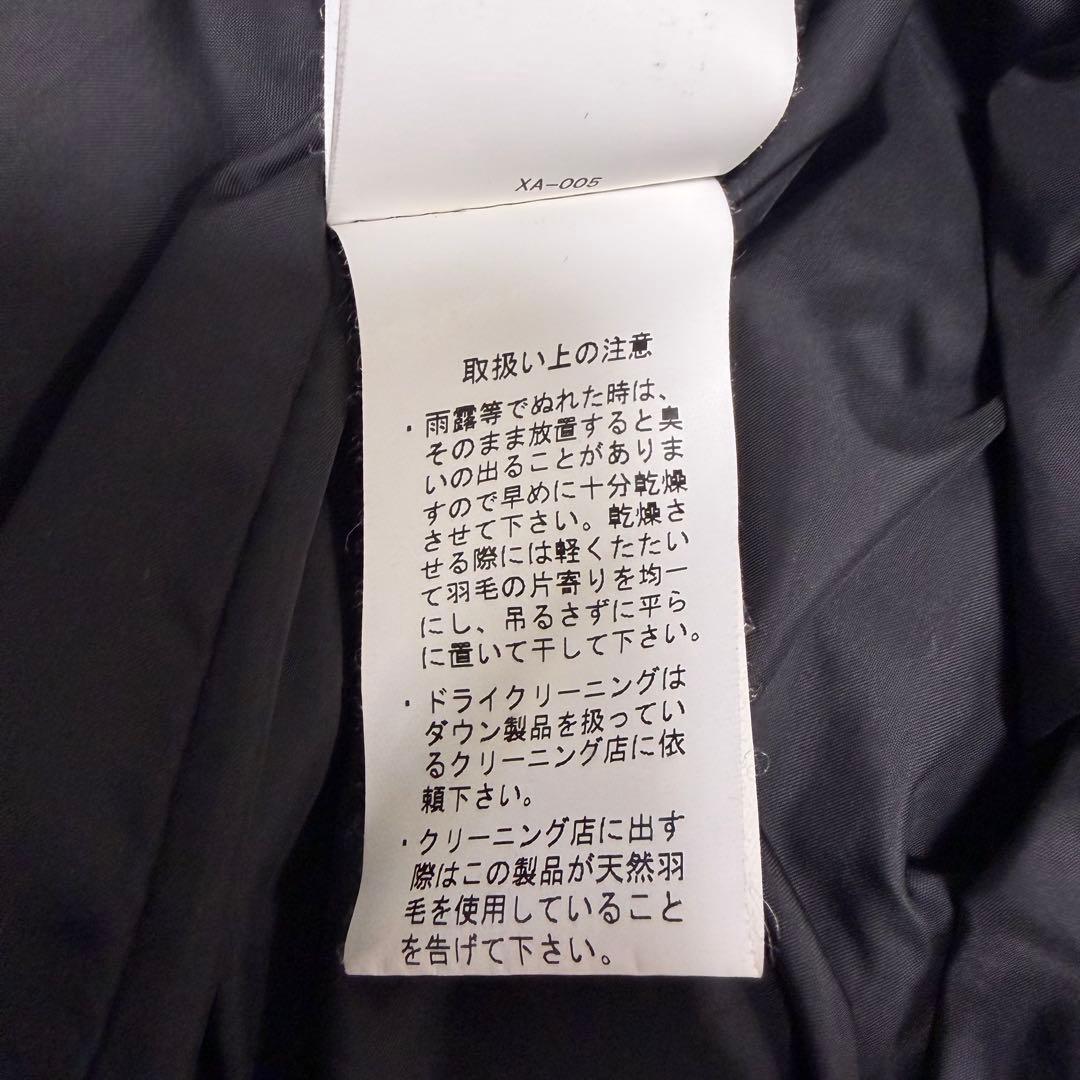 XA-005
取扱い上の注意
・雨露等でぬれた時は、
そのまま放置すると臭
いの出ることがありま
すので早めに十分乾燥
させて下さい。乾燥さ
せる際には軽くたたい
て羽毛の片寄りを均一
にし、吊るさずに平ら
に置いて干して下さい。
・ドライクリーニングは
ダウン製品を扱ってい
るクリーニング店に依
頼下さい。
・クリーニング店に出す
際はこの製品が天然羽
毛を使用していること
を告げて下さい。